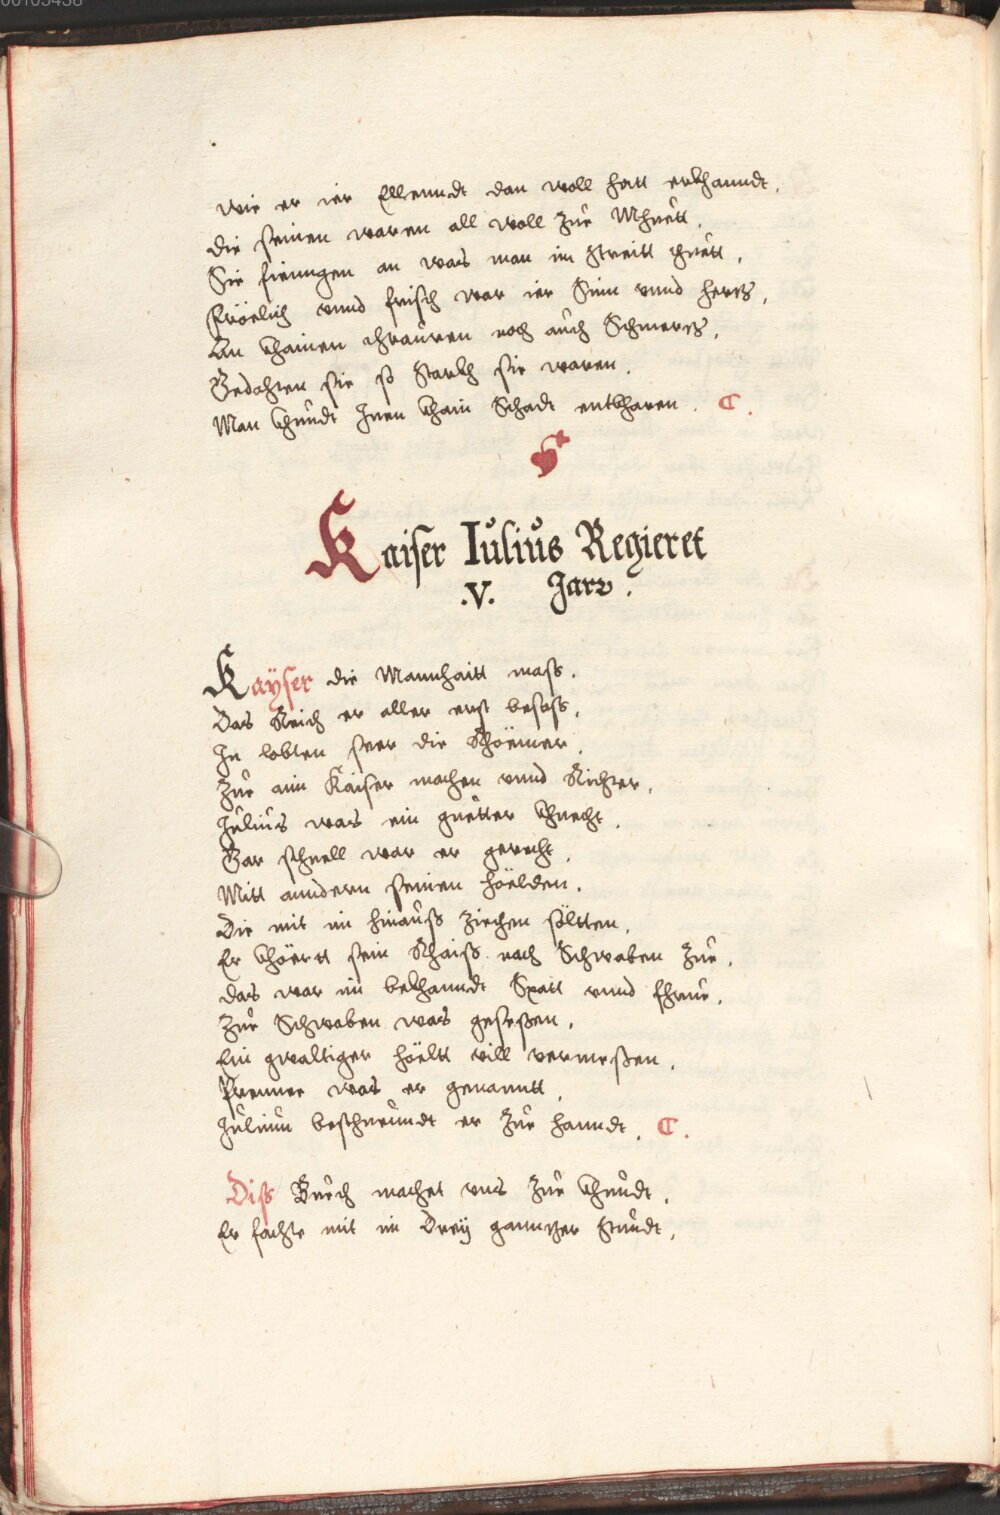 00105438
wie er ier Ellenndt dan woll hatt erkhanndt.
die seinen waren all woll zue Mhuett.
Sie fienngen an was man im Streitt thuett.
Fröelich vnnd frisch war ier Sinn vnnd hertz.
An khainen thrauren noch auch Schmertz.
Gedachten sie so Starkh sie waren.
Man khundt Inen khain Schadt entkharen.
Kaiser Iulius Regieret
.V. Jarr.
Kayser die Mannhaitt mass.
Das Reich er aller erst besass.
In lobten seer die Rhöemer.
Zue aim Kaiser machen vnnd Richter.
Julius was ein guetter khnecht.
Gar schnell war er gerecht.
Mitt anndern seinen höelden.
Die mit im hinauß ziechen söltten.
Er khöertt sein Rhaiß nach Schwaben Zue.
das war im bekhanndt Spatt vnnd fhrue.
Zue Schwaben was gesessen.
Ein gwaltiger höeltt vill vermessen.
Prenner was er genanntt.
Julium beschtuendt er Zue hanndt.
Diss Buech machet vns Zue khundt.
Er fachte mit im Dreÿ gannzer Stundt.